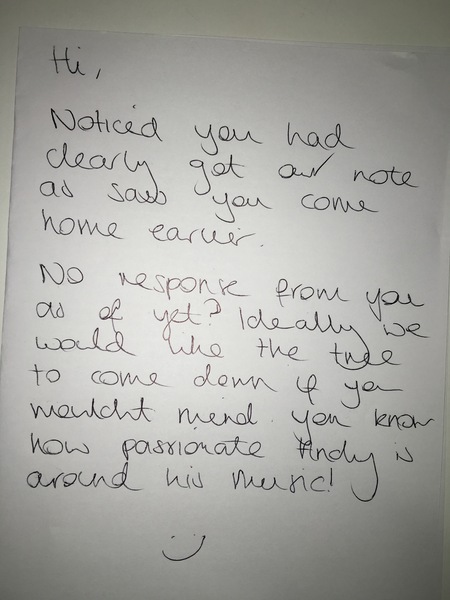 Hi,
Noticed you had
clearly got our note
as saw you come
home earlier.
No response from you
as of yet? Ideally we
would like the tree
to come down if you
wouldn't mind. you know
how passionate Andy is
around his music!